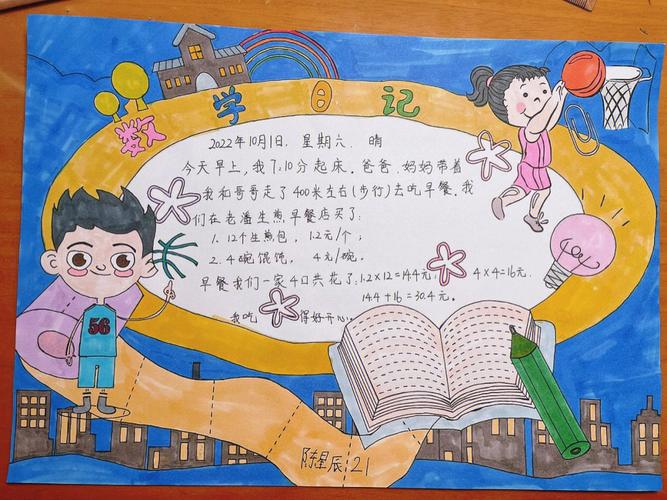 数学日记
2022年10月1日. 星期六. 晴
今天早上,我7:10分起床。爸爸、妈妈带着
我和哥哥走了400米左右(步行)去吃早餐。我
们在老潘生煎早餐店买了:
1. 12个生煎包, 1.2元/个;
2. 4碗馄饨, 4元/碗。
早餐我们一家4口共花了:1.2×12=14.4元; 4×4=16元.
14.4+16=30.4元。
我吃得好开心。
56
陈星辰 21